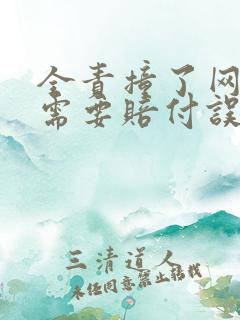 全责撞了网
需要赔付误
三清道人
未经同意禁止转载